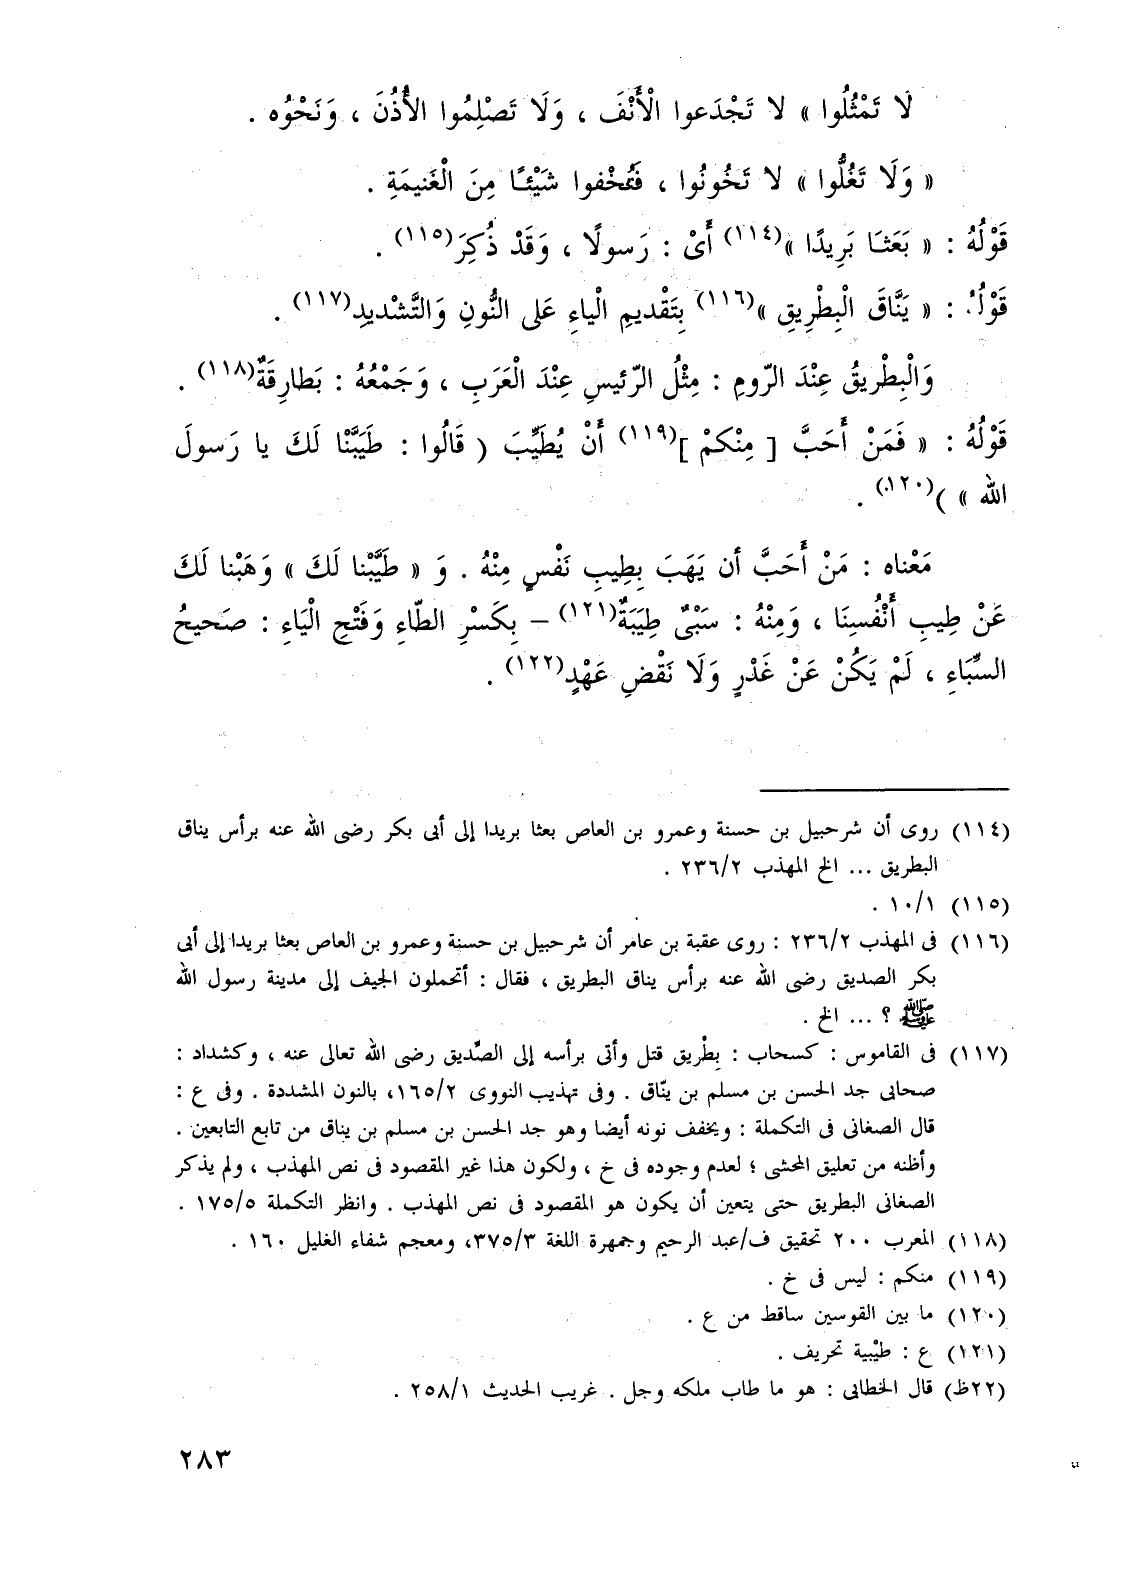 لَا تَمْثُلُوا » لا تَجْدَعوا الْأَنْفَ ، وَلَا تَصْلِمُوا الأُذُنَ ، وَنَحْوُه .
« وَلَا تَغُلُّوا » لا تَخُونُوا ، فَتُخْفوا شَيْئًا مِنَ الْغَنيمَةِ .
قَوْلُهُ : « بَعَثَا بَرِيدًا »(١١٤) أَىْ : رَسولًا ، وَقَدْ ذُكِرَ(١١٥) .
قَوْلُهُ : « يَنَّاقَ الْبِطْرِيقِ »(١١٦) بِتَقْديمِ الْياءِ عَلى النُّونِ وَالتَّشْديدِ(١١٧) .
وَالْبِطْريقُ عِنْدَ الرّومِ : مِثْلُ الرّئيسِ عِنْدَ الْعَرَبِ ، وَجَمْعُهُ : بَطارِقَةٌ(١١٨) .
قَوْلُهُ : « فَمَنْ أَحَبَّ [ مِنْكمْ ](١١٩) أَنْ يُطَيِّبَ ( قَالُوا : طَيَّبْنَا لَكَ يا رَسولَ
الله » )(١٢٠) .
مَعْناه : مَنْ أَحَبَّ أن يَهَبَ بِطيبِ نَفْسٍ مِنْهُ . وَ « طَيَّبْنا لَكَ » وَهَبْنا لَكَ
عَنْ طِيبِ أَنْفُسِنَا ، وَمِنْهُ : سَبْىٌ طِيَبَةٌ(١٢١) – بِكَسْرِ الطّاءِ وَفَتْحِ الْيَاءِ : صَحيحُ
السِّبَاءِ ، لَمْ يَكُنْ عَنْ غَدْرٍ وَلَا نَقْضِ عَهْدٍ(١٢٢) .
(١١٤) روى أن شرحبيل بن حسنة وعمرو بن العاص بعثا بريدا إلى أبى بكر رضى الله عنه برأس يناق
البطريق ... الخ المهذب ٢٣٦/٢ .
(١١٥) ١٠/١ .
(١١٦) فى المهذب ٢٣٦/٢ : روى عقبة بن عامر أن شرحبيل بن حسنة وعمرو بن العاص بعثا بريدا إلى أبى
بكر الصديق رضى الله عنه برأس يناق البطريق ، فقال : أتحملون الجيف إلى مدينة رسول الله
ﷺ ؟ ... الخ .
(١١٧) فى القاموس : كسحاب : بِطْريق قتل وأتى برأسه إلى الصِّديق رضى الله تعالى عنه ، وكشداد :
صحابى جد الحسن بن مسلم بن ينّاق . وفى تهذيب النووى ١٦٥/٢، بالنون المشددة . وفى ع :
قال الصغانى فى التكملة : ويخفف نونه أيضا وهو جد الحسن بن مسلم بن يناق من تابع التابعين .
وأظنه من تعليق المحشى ؛ لعدم وجوده فى خ ، ولكون هذا غير المقصود فى نص المهذب ، ولم يذكر
الصغانى البطريق حتى يتعين أن يكون هو المقصود فى نص المهذب . وانظر التكملة ١٧٥/٥ .
(١١٨) المعرب ٢٠٠ تحقيق ف/عبد الرحيم وجمهرة اللغة ٣٧٥/٣، ومعجم شفاء الغليل ١٦٠ .
(١١٩) منكم : ليس فى خ .
(١٢٠) ما بين القوسين ساقط من ع .
(١٢١) ع : طيْبية تحريف .
(٢٢ظ) قال الخطابى : هو ما طاب ملكه وجل . غريب الحديث ٢٥٨/١ .
٢٨٣